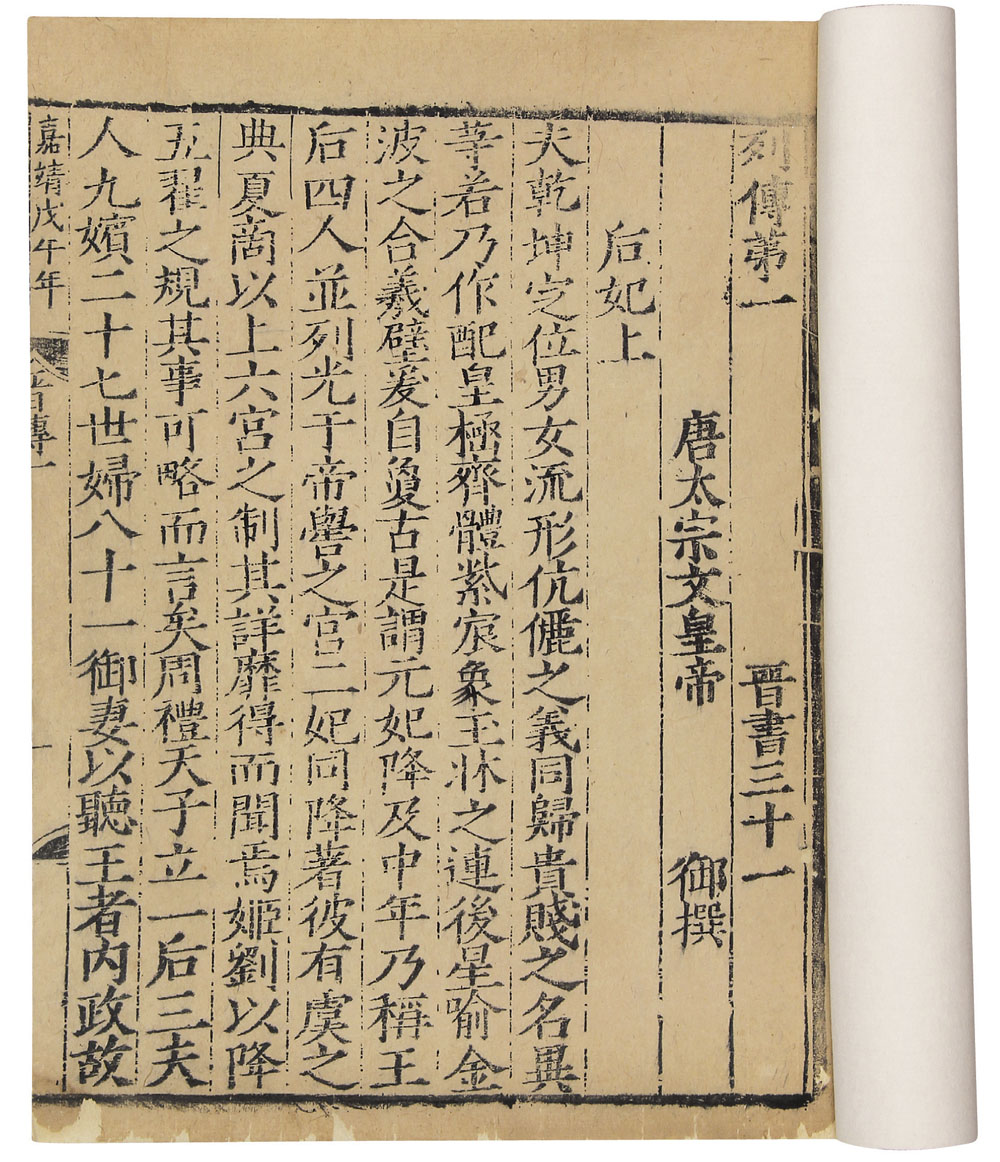 列傳第一 晉書三十一
唐太宗文皇帝 御撰
后妃上
夫乾坤定位男女流形伉儷之義同歸貴賤之名異
等若乃作配皇極齊體紫宸象玉牀之連後星喻金
波之合羲璧爰自夐古是謂元妃降及中年乃稱王
后四人並列光于帝嚳之宮二妃同降著彼有虞之
典夏商以上六宮之制其詳靡得而聞焉姬劉以降
五翟之規其事可略而言矣周禮天子立一后三夫
人九嬪二十七世婦八十一御妻以聽王者内政故
嘉靖戊午年 晉傳一 一